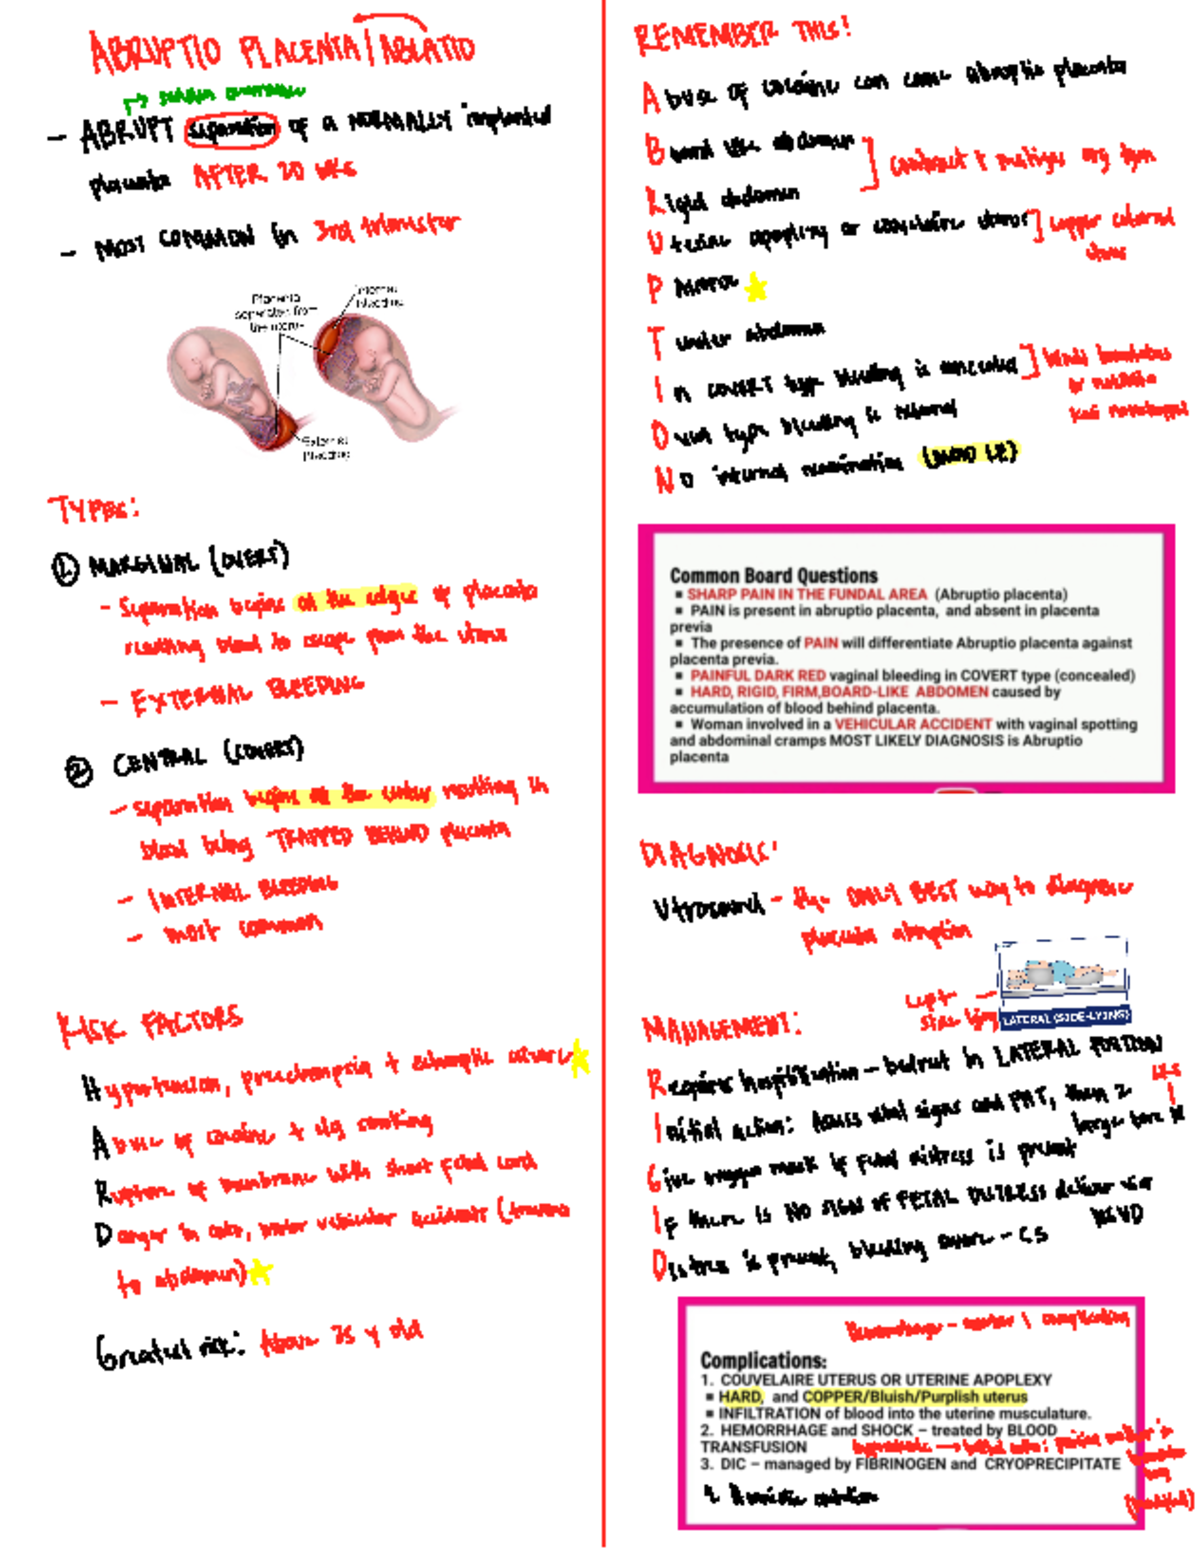 ABRUPTIO PLACENTA/ABLATIO
- ABRUPT separation of a NORMALLY implanted
placenta AFTER 20 WKS
- MOST COMMON in 3rd trimester
Placenta
separates from
the uterus
Internal
bleeding
External
bleeding
TYPES:
① MARGINAL (OVERT)
- Separation begins at the edges of placenta
resulting blood to escape from the uterus
- EXTERNAL BLEEDING
② CENTRAL (COVERT)
- separation begins at the center resulting in
blood being TRAPPED BEHIND placenta
- INTERNAL BLEEDING
- most common
RISK FACTORS
Hypertension, preeclampsia +
Abuse of cocaine + cig smoking
Rupture of membrane with short fetal cord
Danger in auto, motor vehicular accidents (trauma
to abdomen)
Greatest risk: Above 35 y old
REMEMBER THIS!
Abuse of cocaine can cause abruptio placenta
Board like abdomen
Rigid abdomen
Uterine apoplexy or couvelaire uterus] copper colored
uterus
P
Tender abdomen
In COVERT type bleeding is concealed
Overt type bleeding is external
NO internal examination
Common Board Questions
▪ SHARP PAIN IN THE FUNDAL AREA (Abruptio placenta)
▪ PAIN is present in abruptio placenta, and absent in placenta
previa
▪ The presence of PAIN will differentiate Abruptio placenta against
placenta previa.
▪ PAINFUL DARK RED vaginal bleeding in COVERT type (concealed)
▪ HARD, RIGID, FIRM,BOARD-LIKE ABDOMEN caused by
accumulation of blood behind placenta.
▪ Woman involved in a VEHICULAR ACCIDENT with vaginal spotting
and abdominal cramps MOST LIKELY DIAGNOSIS is Abruptio
placenta
DIAGNOSIC:
Utrasound - the ONLY BEST way to diagnose
placenta abruption
Left
side lying
LATERAL (SIDE-LYING)
MANAGEMENT:
Requires hospitalization - bedrest in LATERAL POSITION
Initial action: Assess vital signs and FHT, then 2
large bore IV
Give oxygen mask if fetal distress is present
If there is NO SIGN OF FETAL DISTRESS deliver via
NSVD
Distress is present, bleeding severe - CS
Hemorrhage - number 1 complication
Complications:
1. COUVELAIRE UTERUS OR UTERINE APOPLEXY
▪ HARD, and COPPER/Bluish/Purplish uterus
▪ INFILTRATION of blood into the uterine musculature.
2. HEMORRHAGE and SHOCK – treated by BLOOD
TRANSFUSION
3. DIC – managed by FIBRINOGEN and CRYOPRECIPITATE
4.